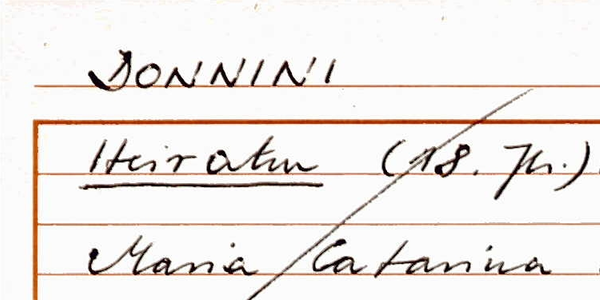 DONNINI
Heiraten (18. Jh.)
Maria Catarina